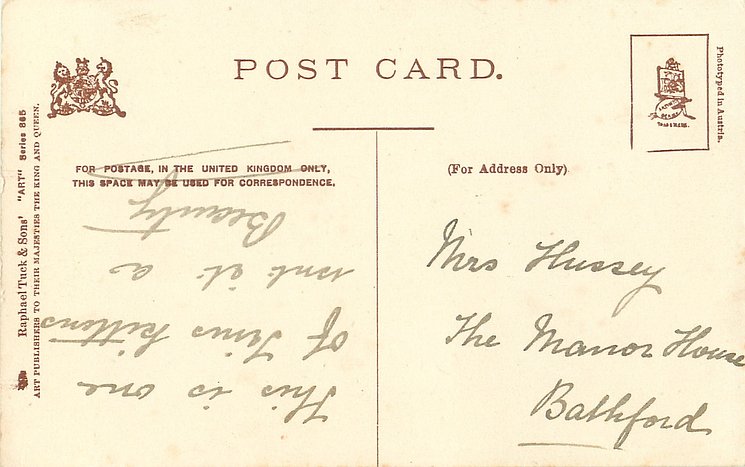 POST CARD.
Phototyped in Austria.
Raphael Tuck & Sons' "ART" Series 865
ART PUBLISHERS TO THEIR MAJESTIES THE KING AND QUEEN.
FOR POSTAGE, IN THE UNITED KINGDOM ONLY,
THIS SPACE MAY BE USED FOR CORRESPONDENCE.
(For Address Only)
This is one
of Tinus kittens
isnt it a
Beauty
Mrs Hussey
The Manor House
Bathford